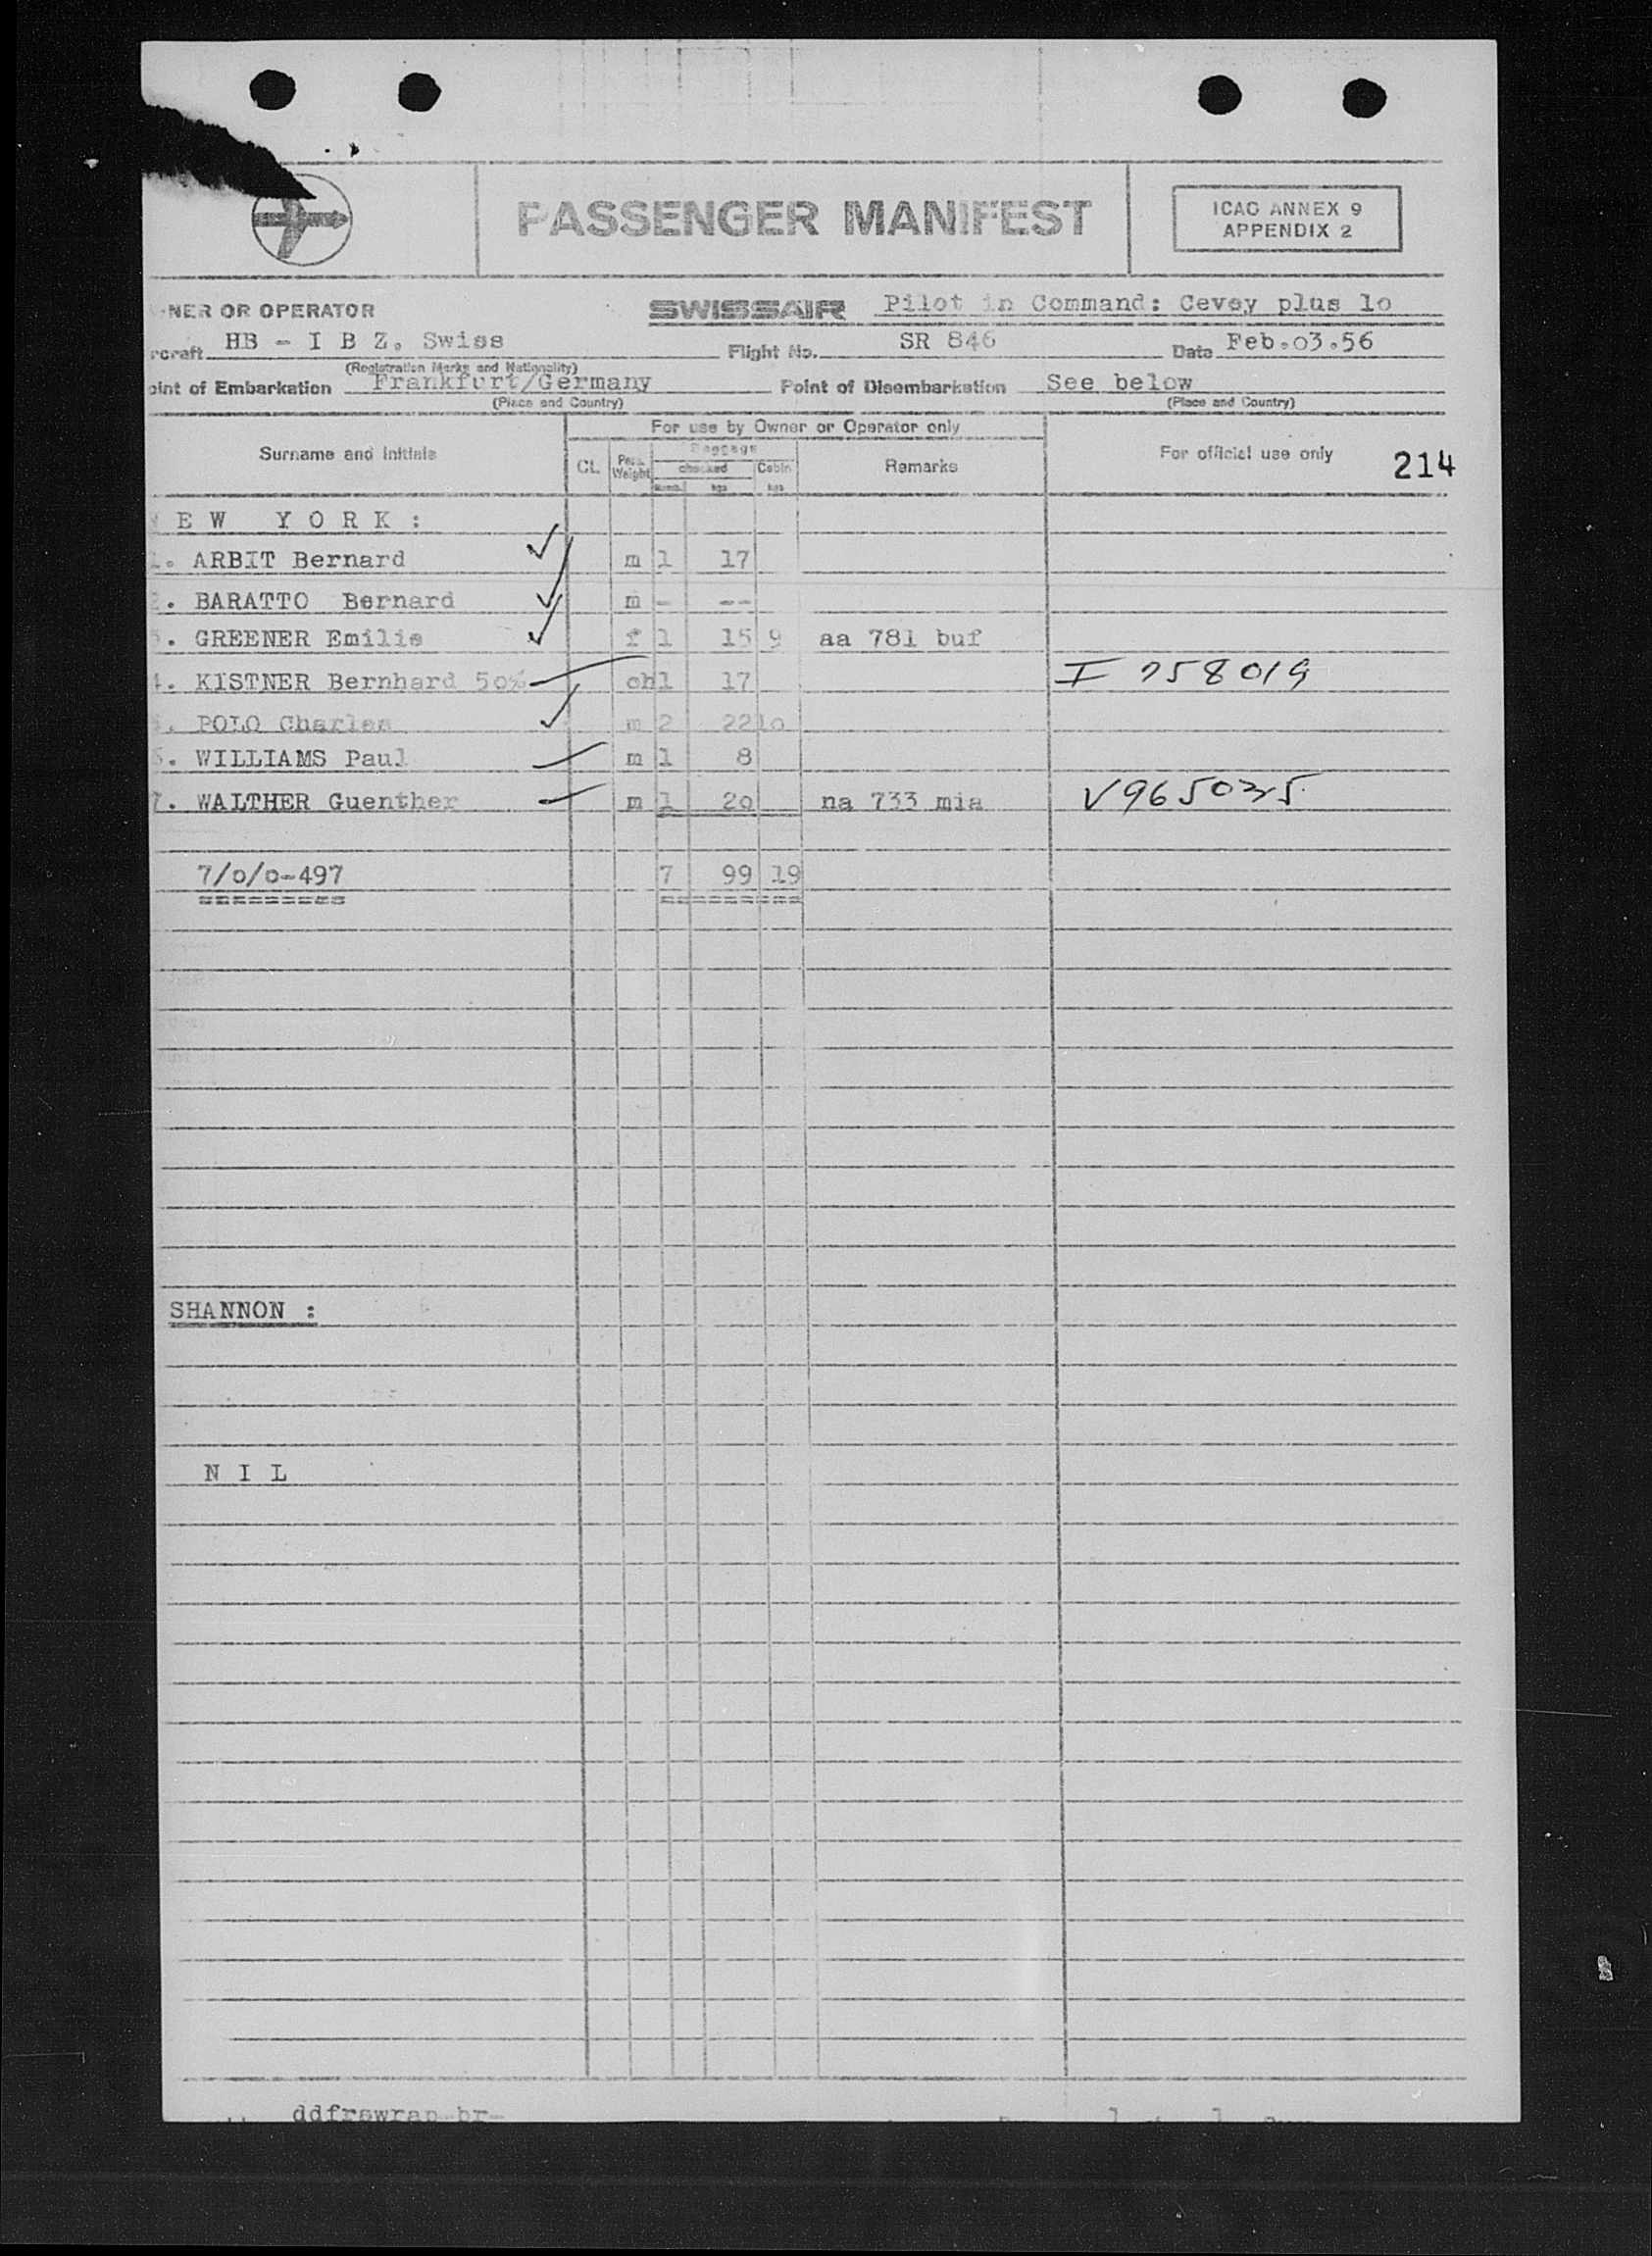 PASSENGER MANIFEST
ICAO ANNEX 9
APPENDIX 2
NER OR OPERATOR SWISSAIR Pilot in Command: Cevey plus lo
rcraft HB - I B Z, Swiss Flight No. SR 846 Date Feb.o3.56
(Registration Marks and Nationality)
oint of Embarkation Frankfurt/Germany Point of Disembarkation See below
(Place and Country) (Place and Country)
For use by Owner or Operator only
Surname and Initials CL. Pass. Weight Baggage checked Cabin Numb. kgs kgs Remarks For official use only 214
E W Y O R K :
1. ARBIT Bernard m 1 17
. BARATTO Bernard m - --
. GREENER Emilie f 1 15 9 aa 781 buf
4. KISTNER Bernhard 5o% ch 1 17 I 758019
. POLO Charles m 2 22 1o
. WILLIAMS Paul m 1 8
7. WALTHER Guenther m 1 2o na 733 mia
7/o/o-497 7 99 19
SHANNON :
N I L